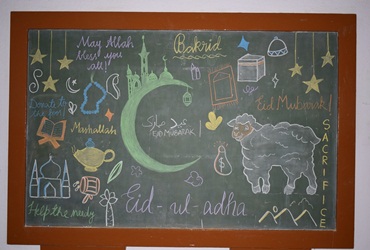 May Allah
bless you
all!
Bakrid
Donate to
the poor!
Mashallah
عيد مبارك
EID MUBARAK!
Eid Mubarak!
SACRIFICE
Help the needy
Eid-ul-adha